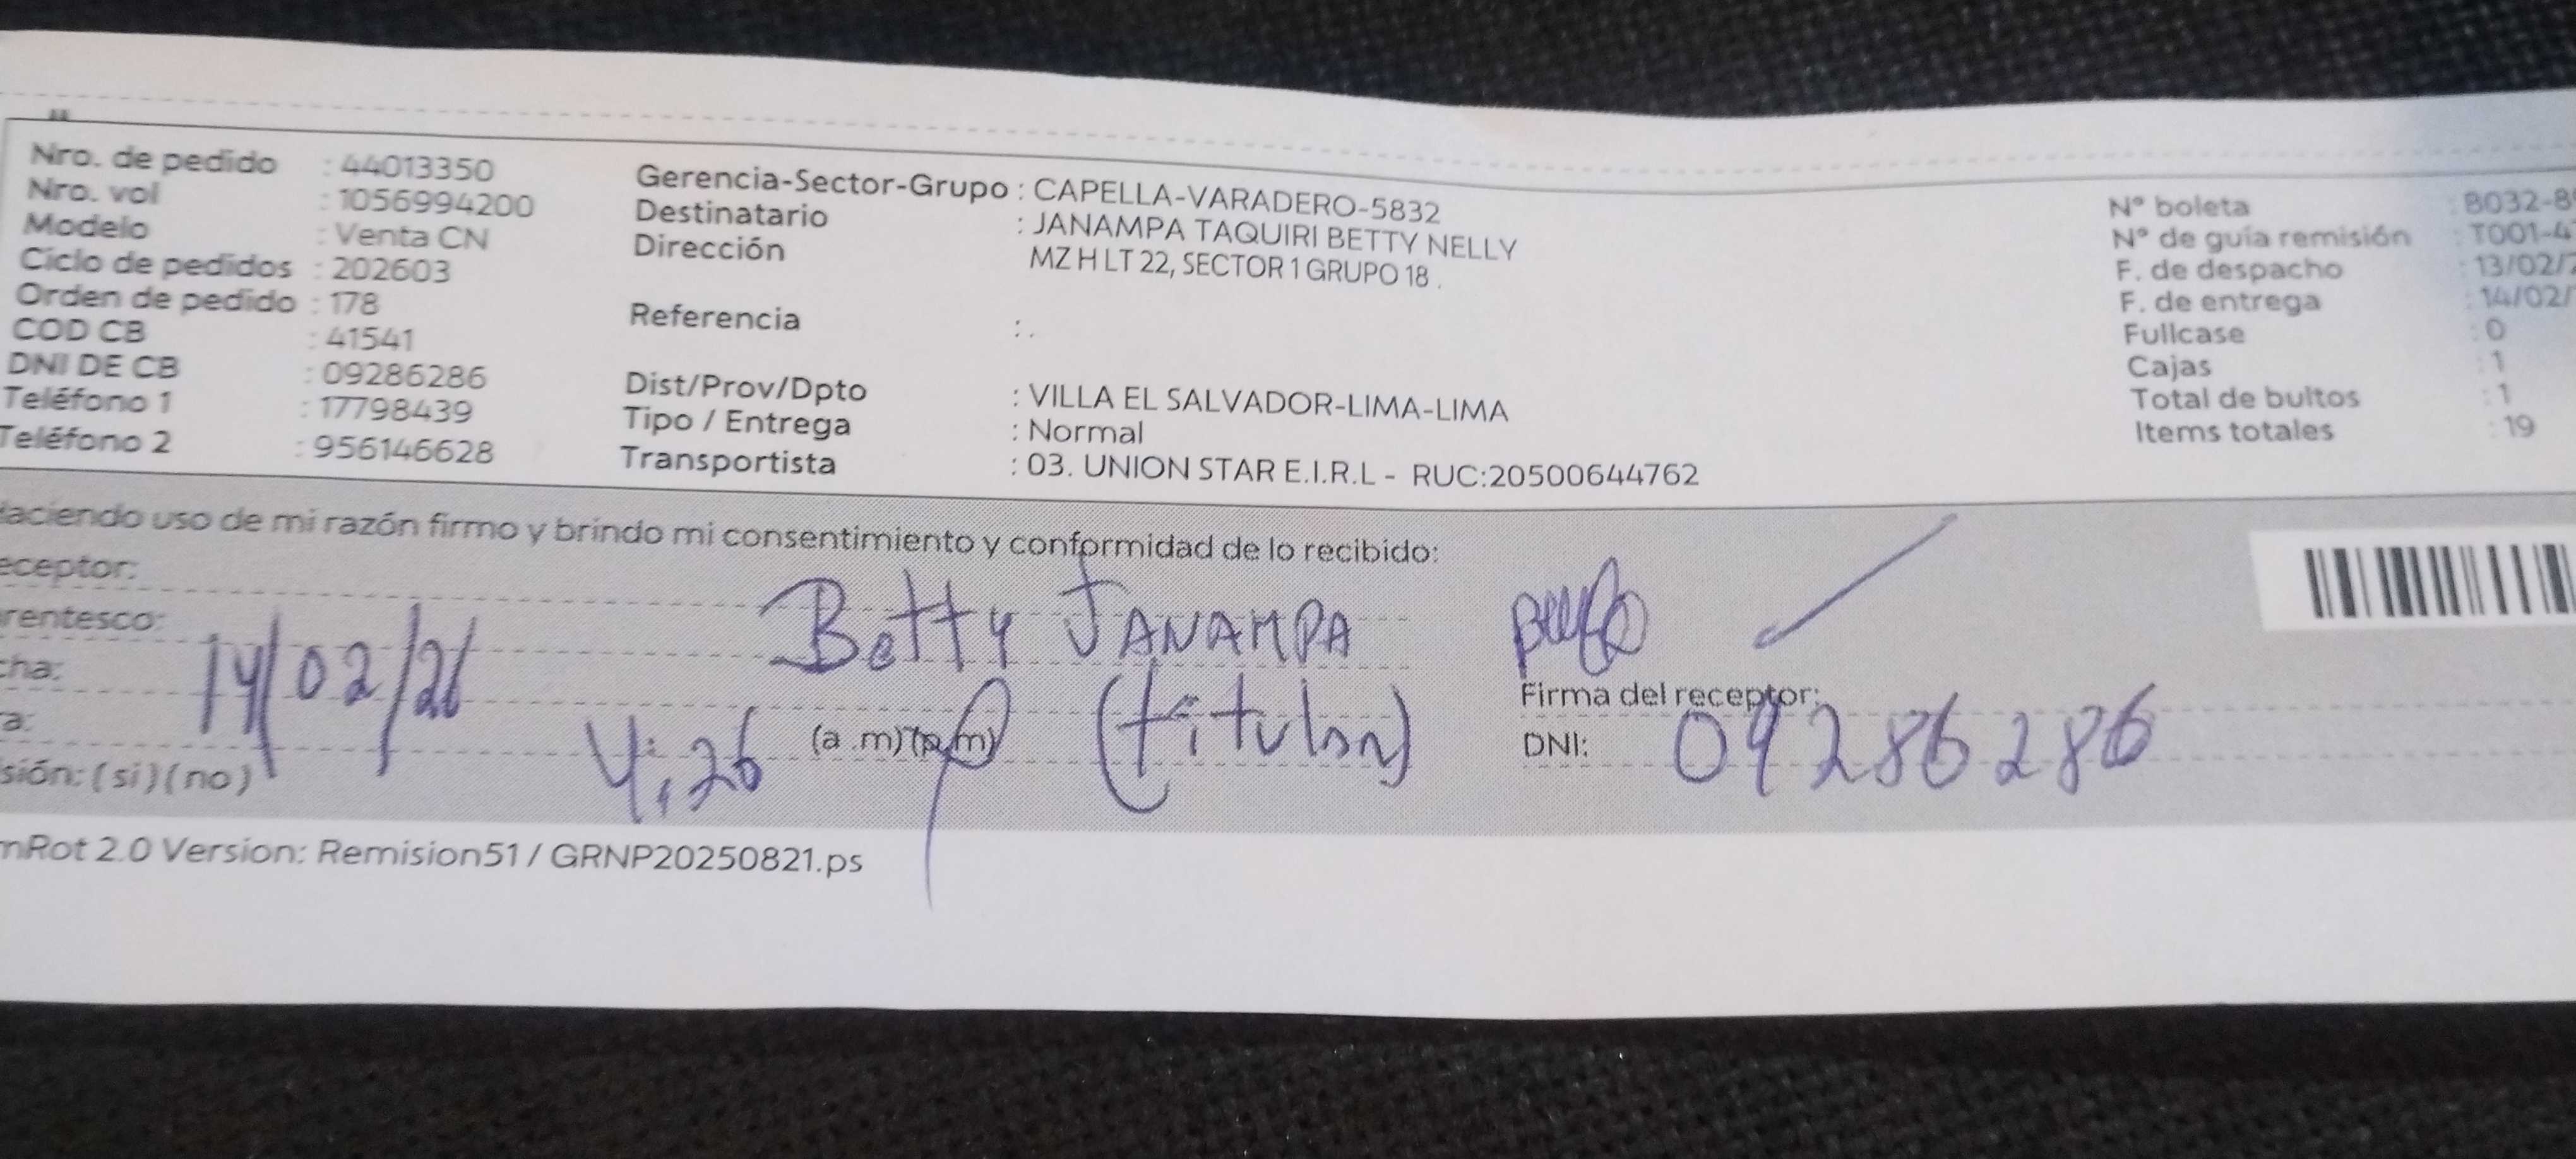 Nro. de pedido : 44013350
Nro. vol : 1056994200
Modelo : Venta CN
Ciclo de pedidos : 202603
Orden de pedido : 178
COD CB : 41541
DNI DE CB : 09286286
Teléfono 1 : 17798439
Teléfono 2 : 956146628
Gerencia-Sector-Grupo : CAPELLA-VARADERO-5832
Destinatario : JANAMPA TAQUIRI BETTY NELLY
Dirección MZ H LT 22, SECTOR 1 GRUPO 18 .
Referencia : .
Dist/Prov/Dpto : VILLA EL SALVADOR-LIMA-LIMA
Tipo / Entrega : Normal
Transportista : 03. UNION STAR E.I.R.L - RUC:20500644762
N° boleta : B032-8
N° de guía remisión : T001-4
F. de despacho : 13/02/2
F. de entrega : 14/02/
Fullcase : 0
Cajas : 1
Total de bultos : 1
Items totales : 19
Haciendo uso de mi razón firmo y brindo mi consentimiento y conformidad de lo recibido:
eceptor: Betty JANAMPA
rentesco: (titular)
cha: 14/02/26
a: 4:26 (a .m) (p.m)
sión: ( si ) ( no )
Firma del receptor:
DNI: 09286286
mRot 2.0 Version: Remision51 / GRNP20250821.ps